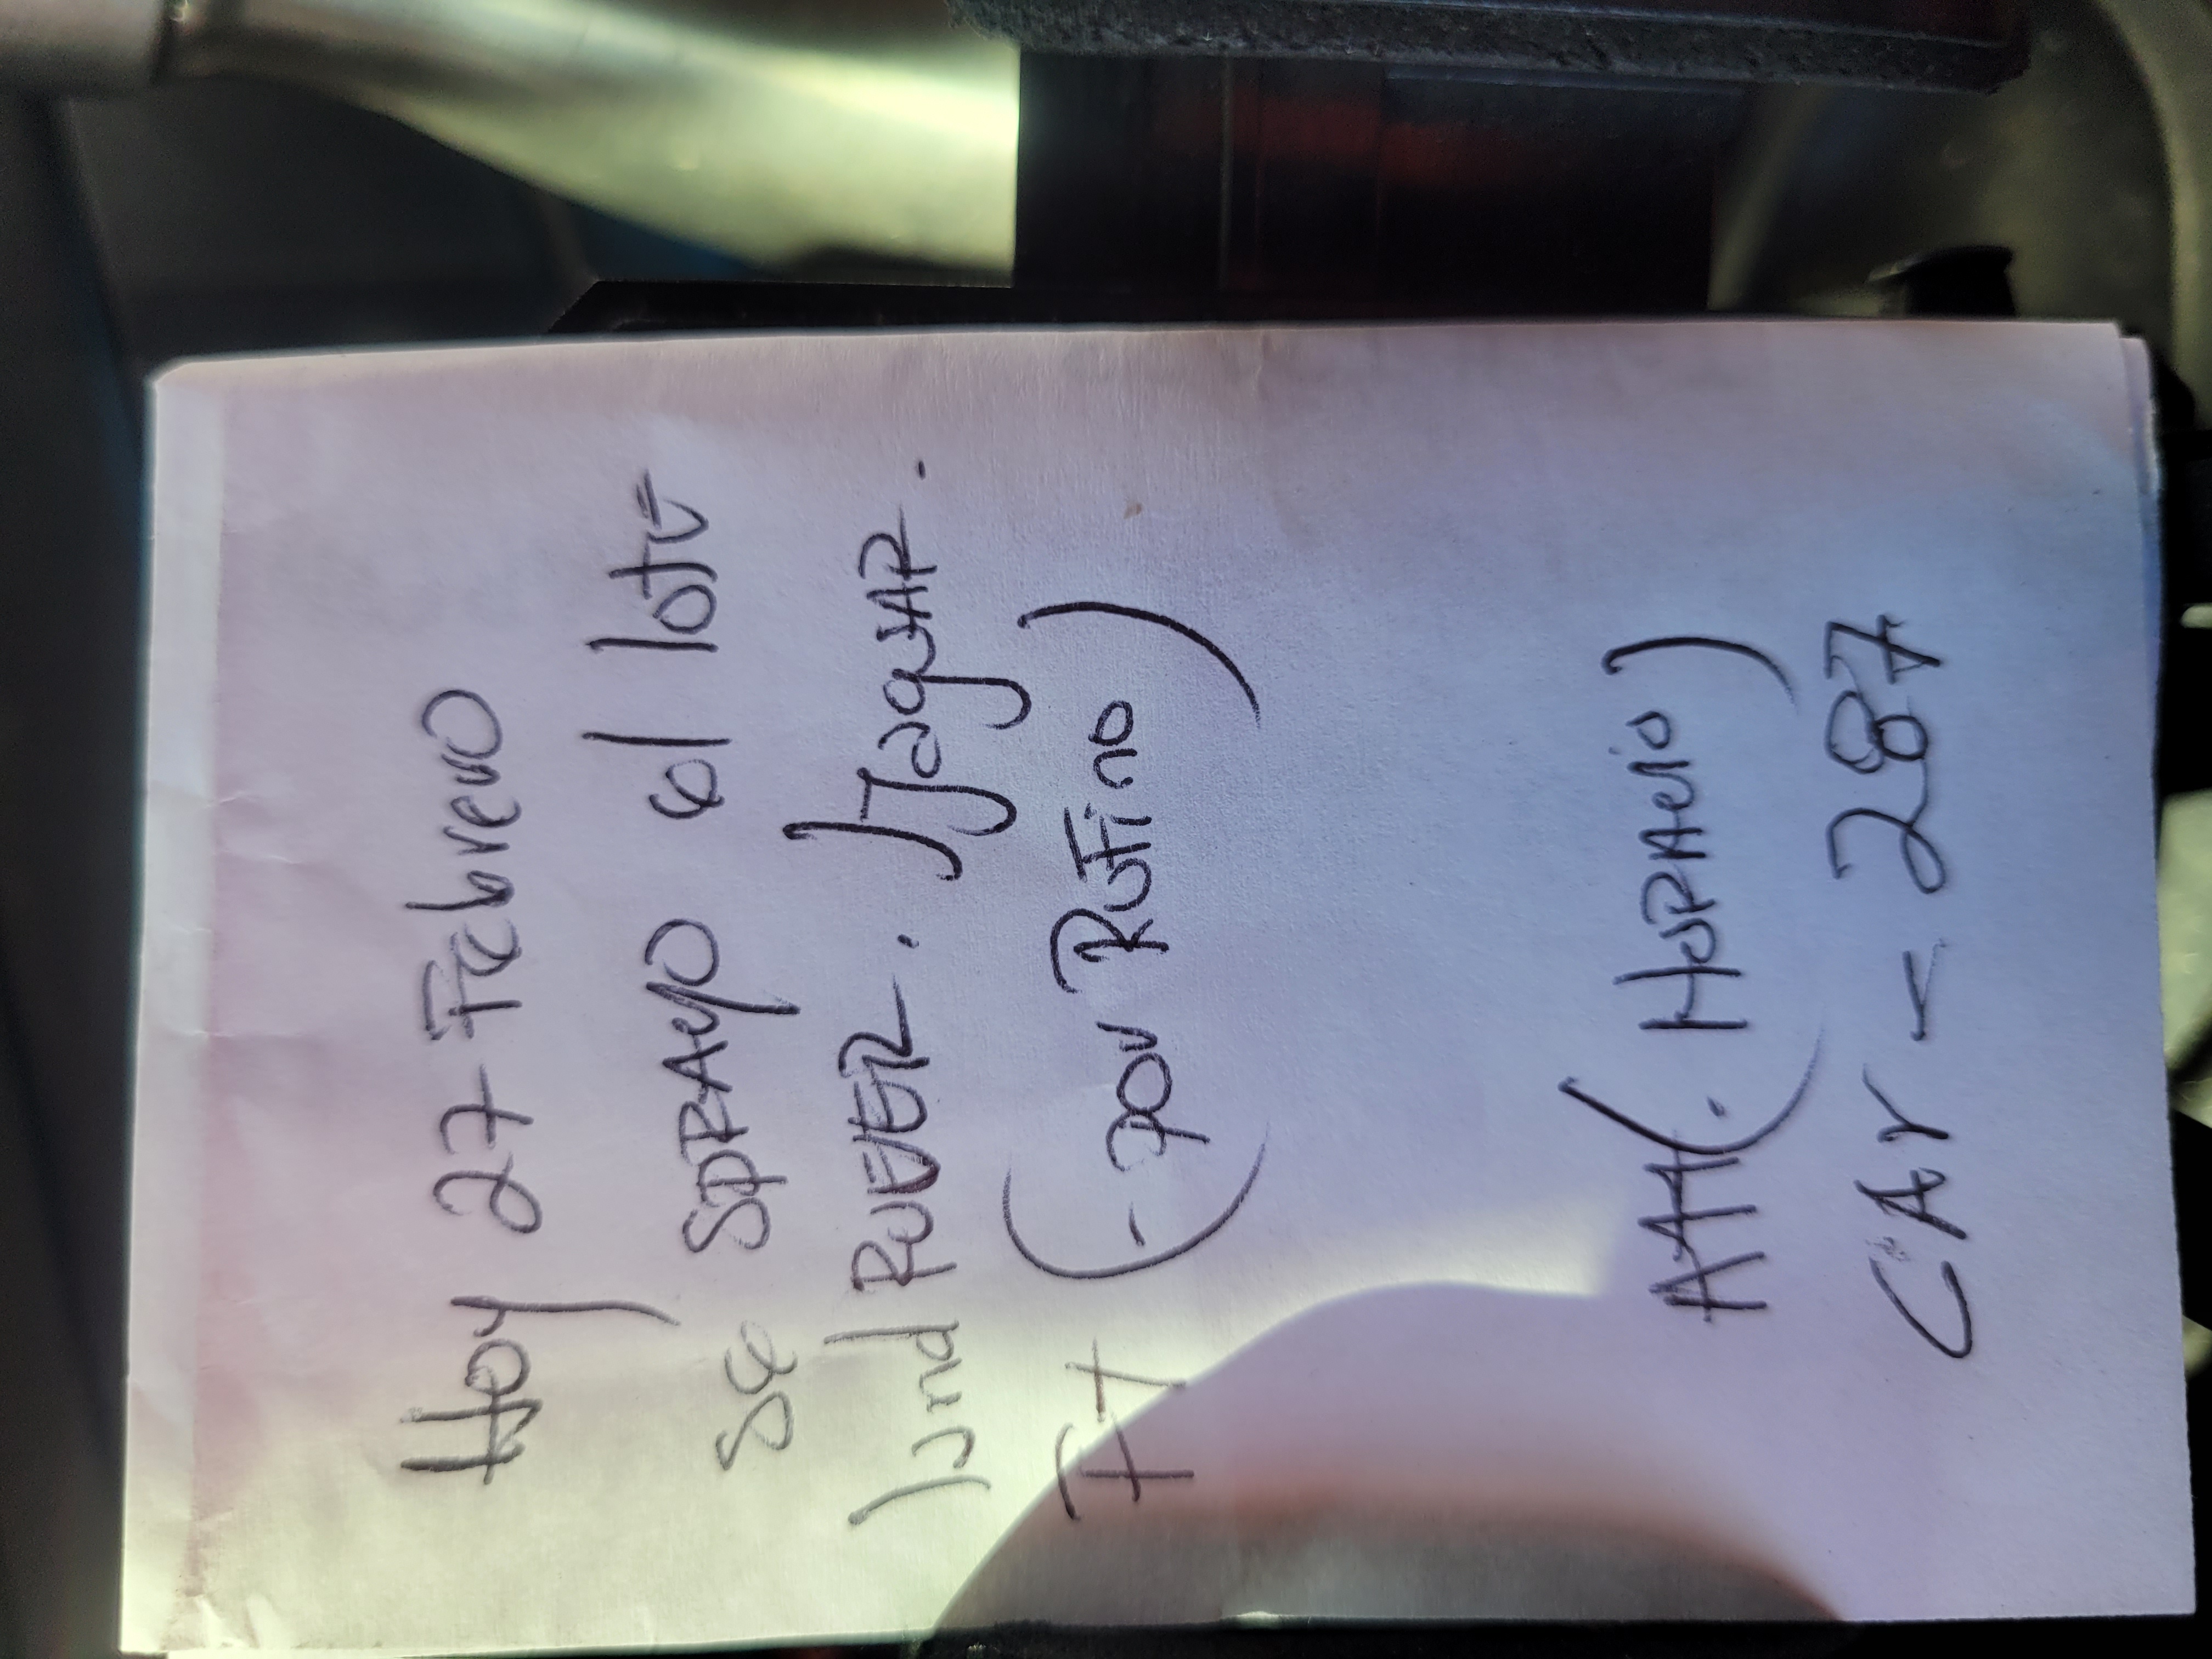 Hoy 27 Febrero
se SPRAYO el lote
land ROVER. Jaguar.
Ft (- por Rufino)
Att(. HORACIO)
CAr - 287